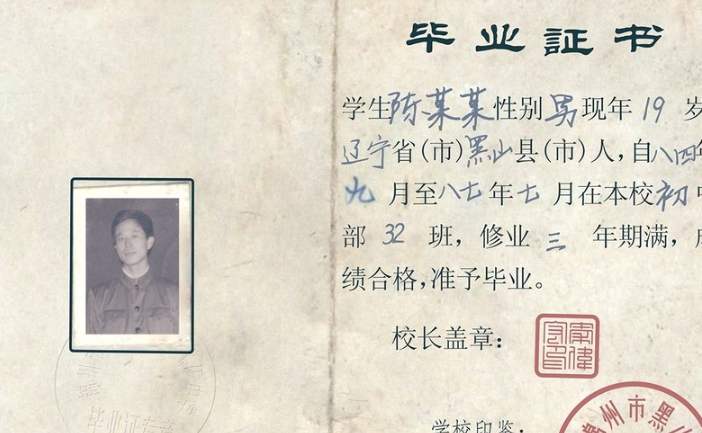 毕业证书
学生陈某某性别男现年19岁
辽宁省(市)黑山县(市)人,自八四年
九月至八七年七月在本校初中
部32班,修业三年期满,成
绩合格,准予毕业。
校长盖章:
学校印鉴:
州市黑
毕业证专